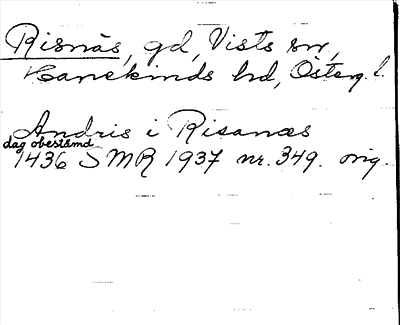 Risnäs, gd, Vists sn,
Hanekinds hd, Österg. l.
Andris i Risanæs
dag obestämd
1436 SMR 1937 nr. 349. orig.